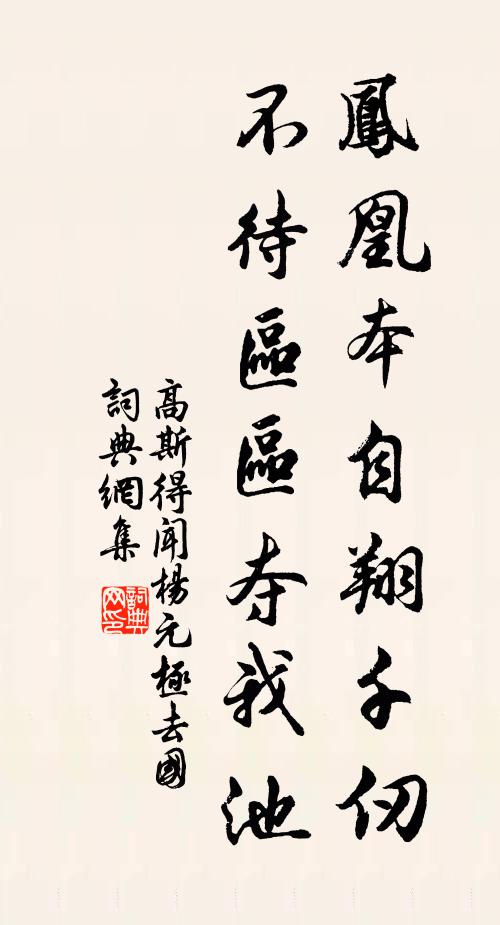 鳳凰本自翔千仞
不待區區夺我池
高斯得聞楊元極去國
詞典網集
詞典网印